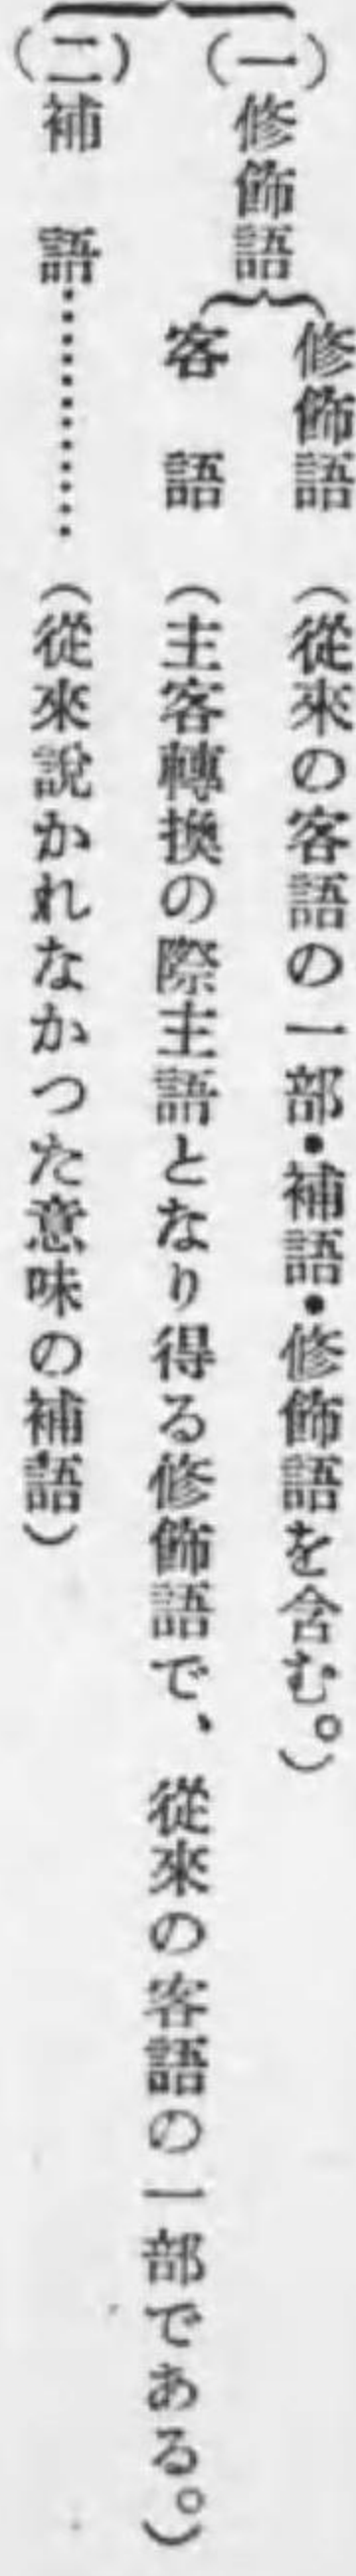 (一)修飾語
修飾語 (從來の客語の一部・補語・修飾語を含む。)
客語 (主客轉換の際主語となり得る修飾語で、從來の客語の一部である。)
(二)補語………… (從來說かれなかつた意味の補語)